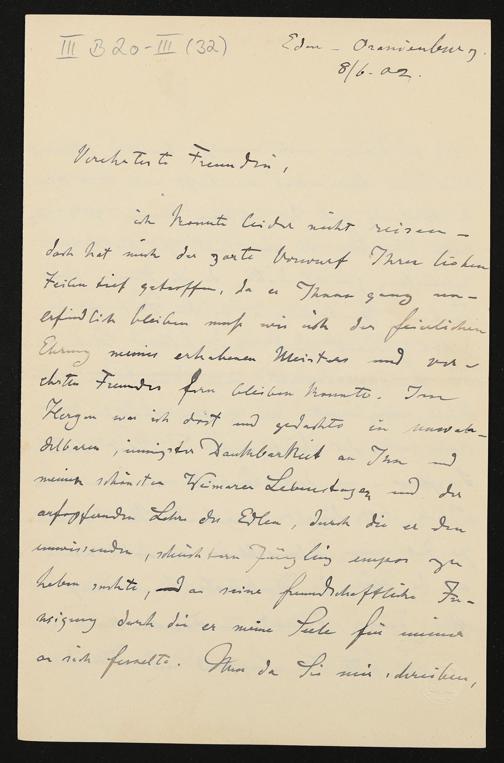 III B 20-III (32)
Eden - Oranienburg.
8/6-02.
Verehrteste Freundin,
ich konnte leider nicht reisen -
doch hat mich der zarte Vorwurf Ihrer lieben
Zeilen tief getroffen, da es Ihnen ganz un-
erfindlich bleiben muß wie ich der feierlichen
Ehrung meines erhabenen Meisters und ver-
ehrten Freundes fern bleiben konnte. Im
Herzen war ich dort und gedachte in unwan-
delbarer, innigster Dankbarkeit an Ihn und
meinen schönsten Weimarer Lebenstagen und der
aufopfernden Lehre des Edlen, durch die er den
unwissenden, schüchternen Jüngling empor zu
heben suchte, und an seine freundschaftliche Zu-
neigung durch die er meine Seele für immer
an sich fesselte. Nun da Sie mir schreiben,